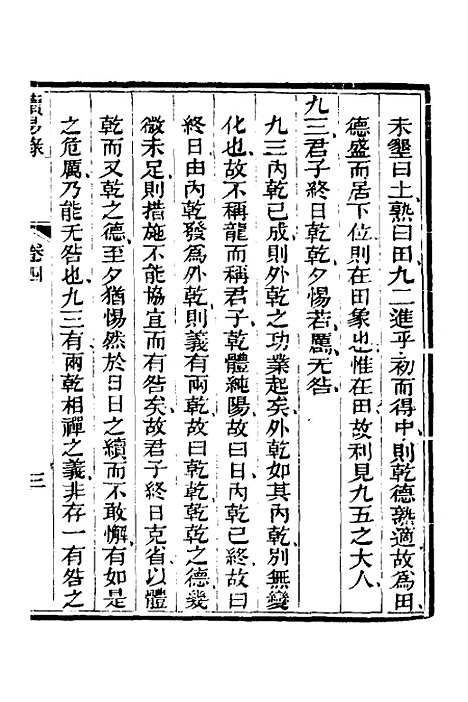 未墾曰土熟曰田九二進乎初而得中則乾德熟適故為田
德盛而居下位則在田象也惟在田故利見九五之大人
九三君子終日乾乾夕惕若厲无咎
九三內乾已成則外乾之功業起矣外乾如其內乾別無變
化也故不稱龍而稱君子乾體純陽故曰日內乾已終故曰
終日由內乾發為外乾則義有兩乾故曰乾乾乾乾之德幾
微未足則措施不能協宜而有咎矣故君子終日克省以體
乾而又乾之德至夕猶惕然於日日之續而不敢懈有如是
之危厲乃能无咎也九三有兩乾相禪之義非存一有咎之
讀易錄
卷四
三